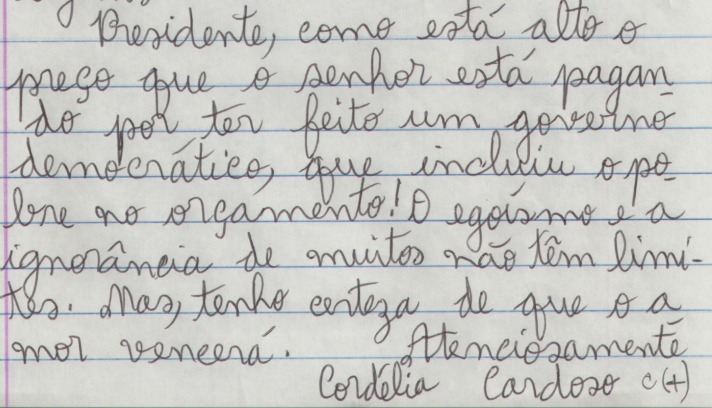 Presidente, como está alto o
preço que o senhor está pagan
do por ter feito um governo
democrático, que incluiu o po-
bre no orçamento! O egoísmo e a
ignorância de muitos não têm limi-
tes. Mas, tenho certeza de que o a
mor vencerá. Atenciosamente
Cordélia Cardoso